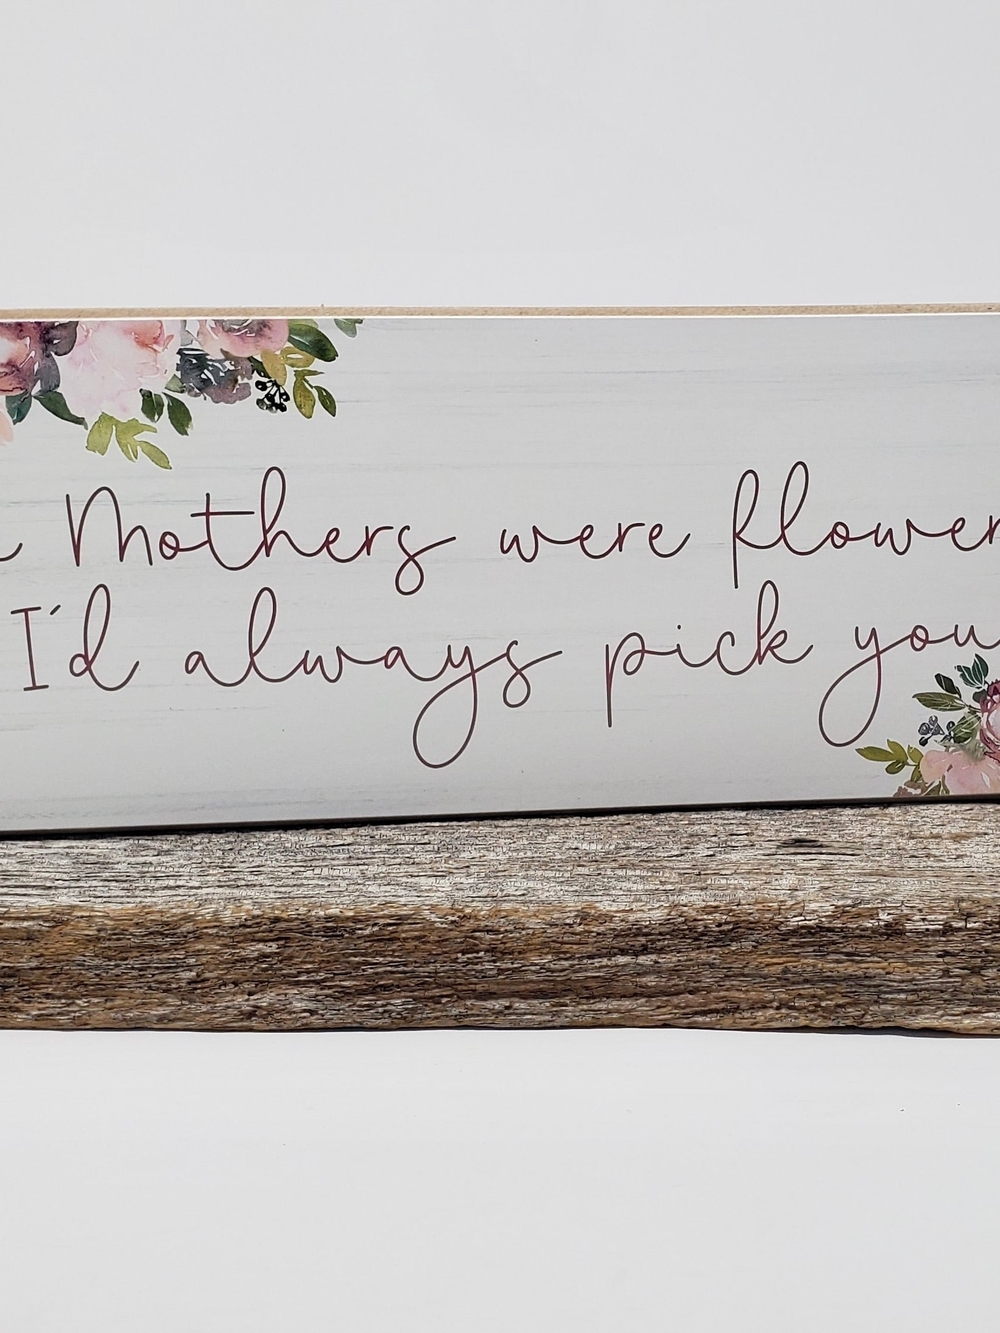 Mothers were flower
I'd always pick you